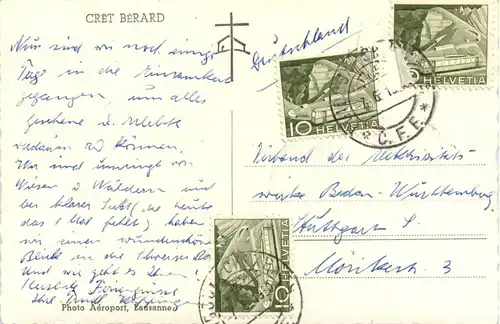 CRÊT BÉRARD
Nun sind wir noch einige
Tage in die Einsamkeit
gegangen, um alles
Gesehene u. Erlebte
verdauen zu können.
Wir sind umringt von
Wiesen u Wäldern und
bei klarer Sicht (die heute
das 1. Mal fehlt) haben
wir einen wunderschönen
Blick in die Schweizer
Und wie geht es Ihnen?
Herzliche Feriengrüsse
Ihre
Photo Aéroport, Lausanne
Deutschland
10 HELVETIA
HELVETIA
C. F. F.
Verband der Elektrizitäts
werke Baden-Württemberg
Stuttgart S.
Mörikestr. 3
10 HELVETIA